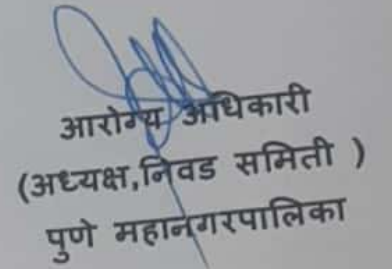 आरोग्य अधिकारी
(अध्यक्ष,निवड समिती )
पुणे महानगरपालिका